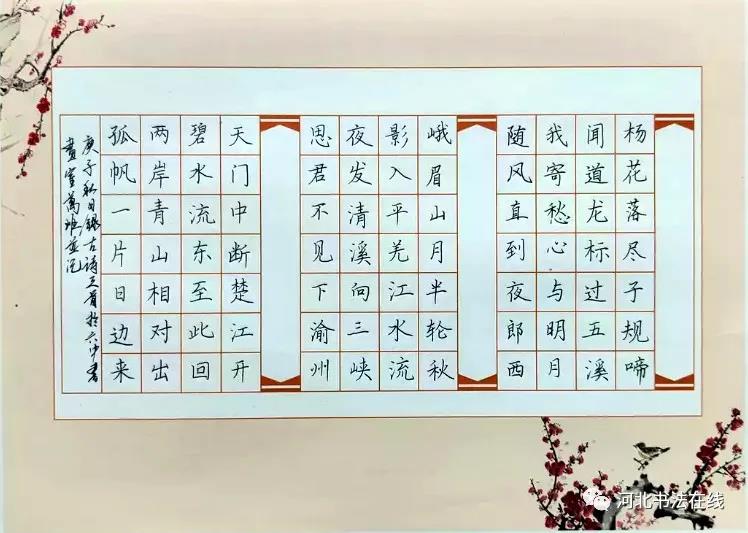 杨花落尽子规啼
闻道龙标过五溪
我寄愁心与明月
随风直到夜郎西
峨眉山月半轮秋
影入平羌江水流
夜发清溪向三峡
思君不见下渝州
天门中断楚江开
碧水流东至此回
两岸青山相对出
孤帆一片日边来
庚子秋日录古诗三首于六中书
画室
河北书法在线